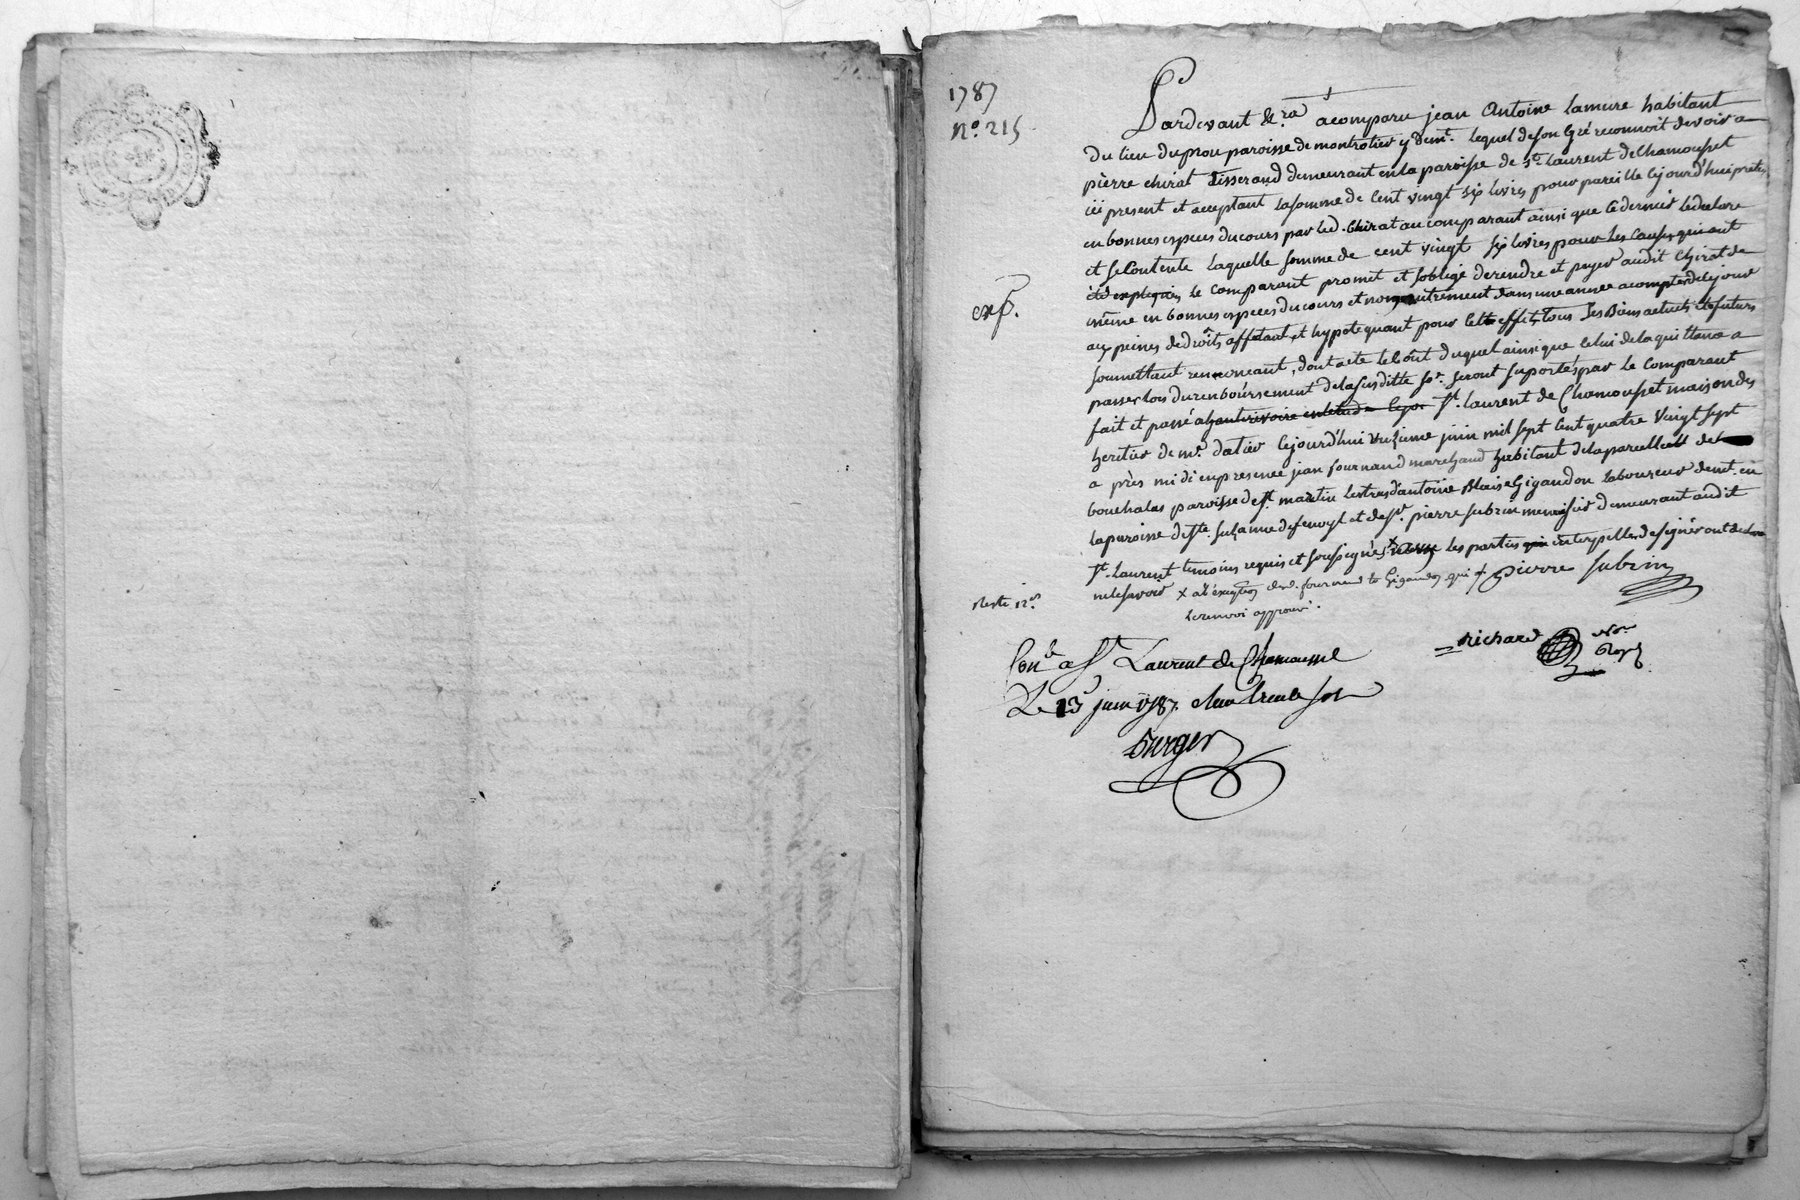 1787
n.o 215
Pardevant &.ra a comparu jean Antoine Lamure habitant
du lieu du prou paroisse de montrotier y dem.t lequel de son gré reconnoit devoir a
pierre chirat tisserand demeurant en la paroisse de S.t Laurent de Chamousset
ici present et acceptant la somme de cent vingt six livres pour pareille cejourd'hui pretée
en bonnes especes du cours par led. Chirat au comparant ainsi que ce dernier le declare
et se Contente laquelle somme de cent vingt six livres pour les causes qui ont
été expliquées le comparant promet et s'oblige de rendre et payer audit Chirat de
même en bonnes especes du cours et non autrement dans une année a compter de ce jour
aux peines de droit, affectant et hypotequant pour cet effet, tous ses Biens actuels et futurs
soumettant renonceant, dont acte le Coût duquel ainsi que celui de la quittance a
passer lors du remboursement de la susditte s.e seront suportés par le Comparant
fait et passé a hauterivoire en letude S.t Laurent de Chamousset maison des
heritier de m.e datier cejourd'hui onzieme juin mil sept cent quatre vingt sept
a près midi en presence jean fournand marchand habitant de la parcelle de
bouchalas paroisse de S.t martin Lestra d'antoine Blaise Gigandon laboureur dem.t en
la paroisse de S.te Suzanne desenoyl et de S.r pierre subrin menuisier demeurant audit
S.t Laurent temoins requis et soussignés x les parties interpellées de signer ont declaré
ne le savoir x a l'exception desd. fournand et Gigandon qui + pierre subrin
Le renvoi approuvé.
exp.
Reste 12.s
Con.lé a S.t Laurent de Chamousset
Le 13 juin 1787 Reçu trente sols
Burger
richard No.re Roy.l